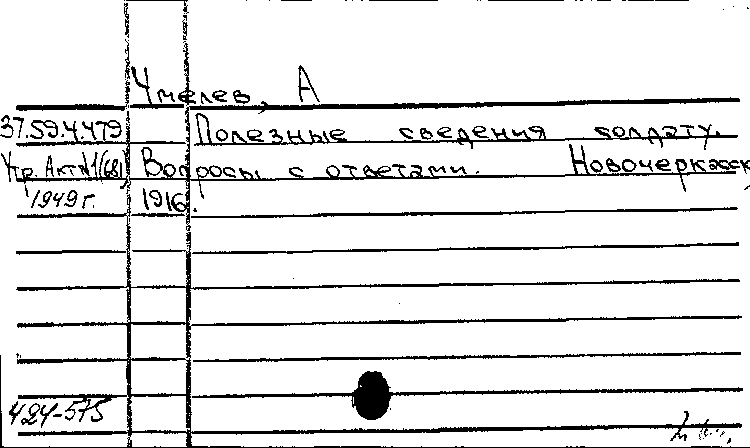 Чмелев, А
37.59.4.479 Полезные сведения солдату.
Утр. Акт №1(681) Вопросы с ответами. Новочеркасск,
1949 г. 1916.
424-575